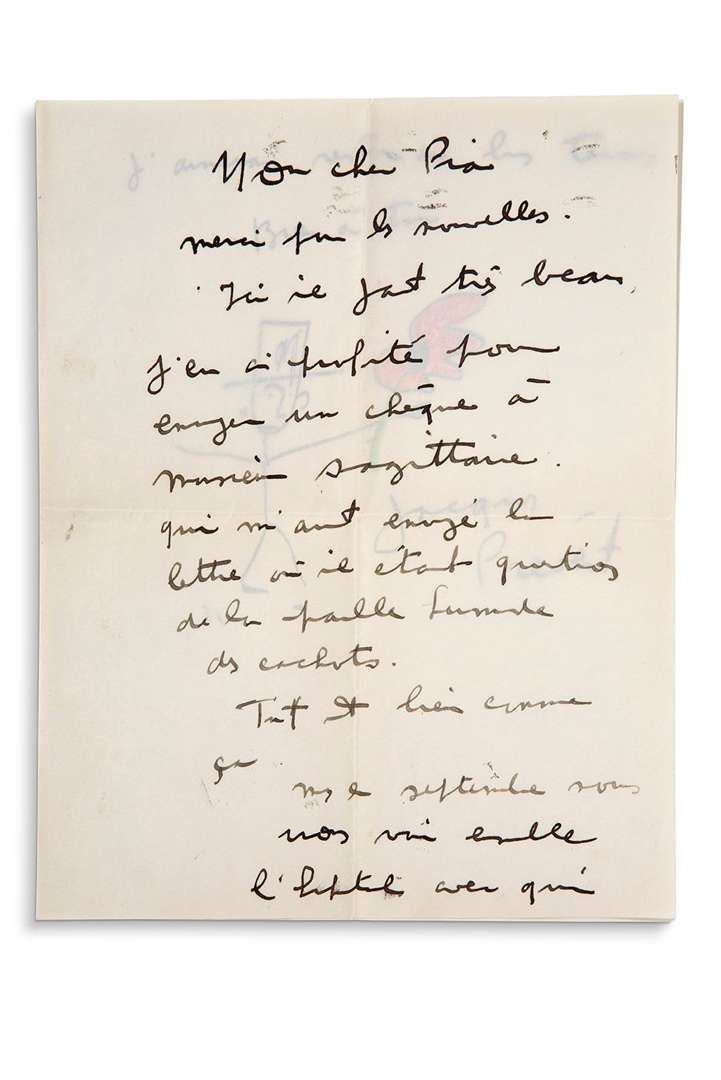 Mon cher Pia
merci pour les nouvelles.
Ici il fait très beau,
j'en ai profité pour
envoyer un chèque à
sagittaire.
qui m'ont envoyé la
lettre où il était question
de la paille humide
des cachots.
Tout est bien comme
ça
septembre nous
l'hôpital avec qui
Jacques